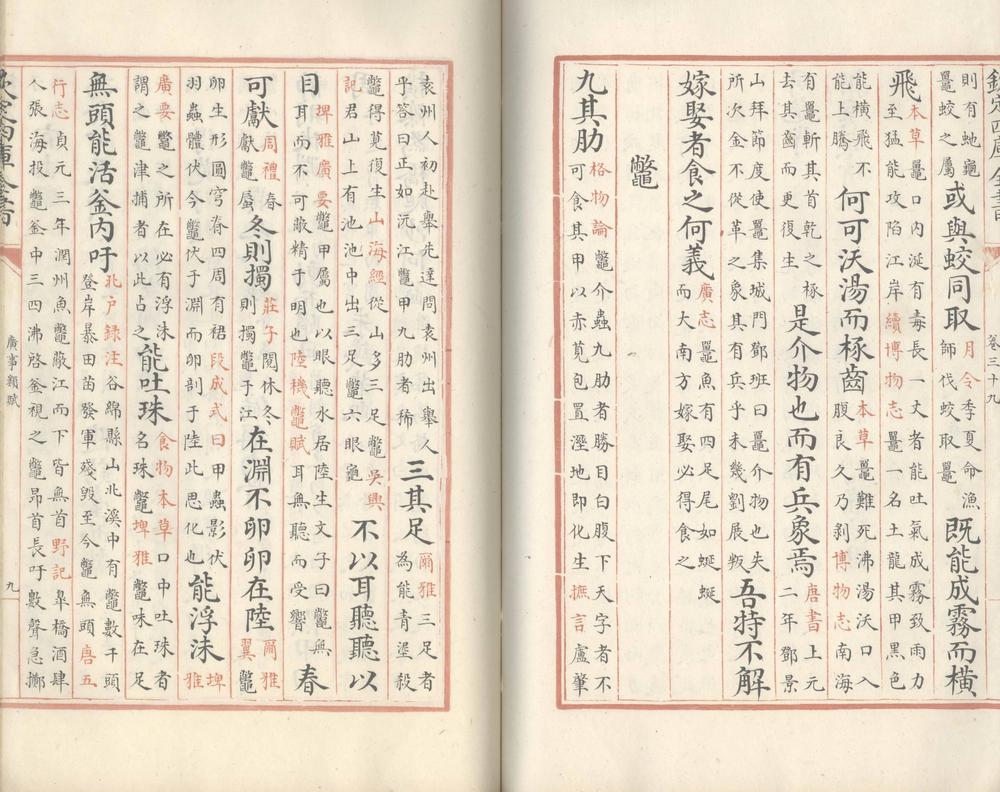 卷三十九
則有虵龜鼉蛟之屬或與蛟同取月令季夏命漁師伐蛟取鼉既能成霧而橫
飛本草鼉口內涎有毒長一丈者能吐氣成霧致雨力至猛能攻陷江岸續博物志鼉一名土龍其甲黑色
能橫飛不能上騰何可沃湯而椓齒本草鼉難死沸湯沃口入腹良久乃剥博物志南海
有鼉斬其首乾之椓去其齒而更復生是介物也而有兵象焉唐書上元二年鄧景
山拜節度使鼉集城門鄧班曰鼉介物也失所次金不從革之象其有兵乎未幾劉展叛吾特不解
嫁娶者食之何義廣志鼉魚有四足尾如蜒蜒而大南方嫁娶必得食之
鼈
九其肋格物論鼈介蟲九肋者勝目白腹下天字者不可食其甲以赤莧包置溼地即化生摭言盧肇
袁州人初赴舉先達問袁州出舉人乎答曰正如沅江鼈甲九肋者稀三其足爾雅三足者為能青溼殺
鼈得莧復生山海經從山多三足鼈吳興記君山上有池池中出三足鼈六眼龜不以耳聽聽以
目埤雅廣要鼈甲屬也以眼聽水居陸生文子曰鼈無耳而不可蔽精于明也陸機鼈賦耳無聽而受響春
可獻周禮春獻鼈蜃冬則擉莊子閱休冬則擉鼈于江在淵不卵卵在陸爾雅翼鼈
卵生形圓穹脊四周有裙段成式曰甲蟲影伏羽蟲體伏今鼈伏于淵而卵剖于陸此思化也能浮沫埤雅
廣要鼈之所在必有浮沫謂之鼈津捕者以此占之能吐珠食物本草口中吐珠者名珠鼈埤雅鼈味在足
無頭能活釜內吁北戶錄注谷綿縣山北溪中有鼈數千頭登岸暴田苗發軍殘毀至今鼈無頭唐五
行志貞元三年潤州魚鼈蔽江而下皆無首野記皐橋酒肆人張海投鼈釜中三四沸啓釜視之鼈昂首長吁數聲急擲
廣事類賦
九